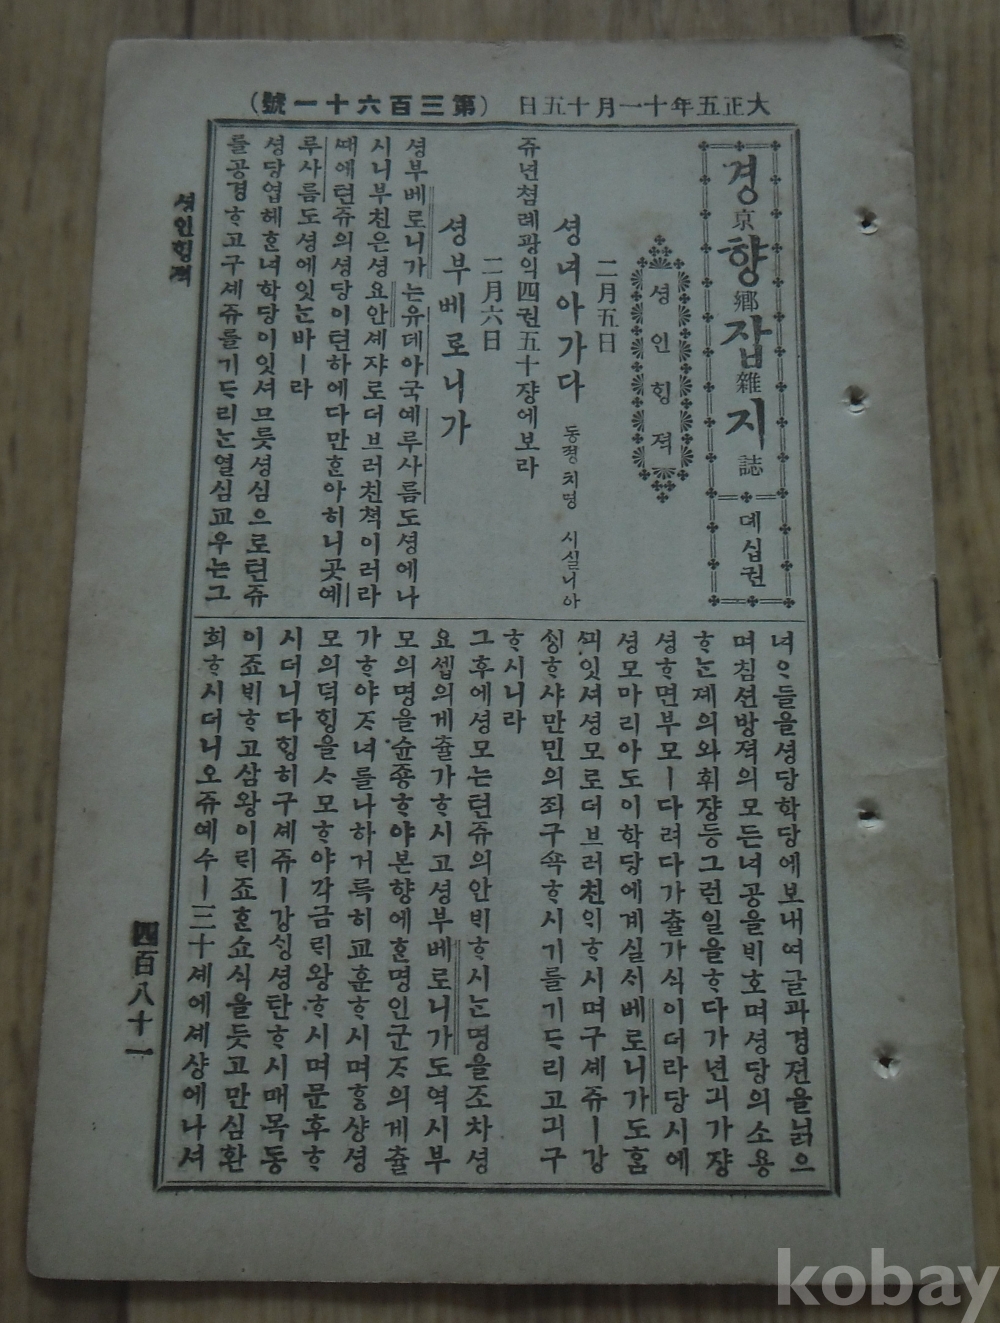 大正五年十一月十五日 (第三百六十一號)
경京향鄕잡雜지誌 뎨십권
셩인ᄒᆡᆼ젹
二月五日
셩녀아가다 동졍치명 시실니아
쥬년쳠례광익四권五十쟝에보라
二月六日
셩부베로니가
셩부베로니가는유데아국예루사름도셩에나
시니부친은셩요안셰쟈로더브러친쳑이러라
때에텬쥬의셩당이텬하에다만ᄒᆞᆫ아히니곳예
루사름도셩에잇ᄂᆞᆫ바ㅣ라
셩당엽헤ᄒᆞᆫ녀학당이잇셔므릇셩심으로텬쥬
를공경ᄒᆞ고구셰쥬를기ᄃᆞ리ᄂᆞᆫ열심교우는그
녀ᄋᆞ들을셩당학당에보내여글과경젼을닑으
며침션방젹의모든녀공을ᄇᆡ호며셩당의소용
ᄒᆞᄂᆞᆫ졔의와휘쟝등그런일을ᄒᆞ다가년긔가쟝
셩ᄒᆞ면부모ㅣ다려다가츌가식이더라당시에
셩모마리아도이학당에계실ᄉᆡ베로니가도홈
ᄭᅴ잇셔셩모로더브러친ᄋᆡᄒᆞ시며구셰쥬ㅣ강
ᄉᆡᆼᄒᆞ샤만민의죄구쇽ᄒᆞ시기를기ᄃᆞ리고긔구
ᄒᆞ시니라
그후에셩모는텬쥬의안ᄇᆡᄒᆞ시ᄂᆞᆫ명을조차셩
요셉의게츌가ᄒᆞ시고셩부베로니가도역시부
모의명을슌죵ᄒᆞ야본향에ᄒᆞᆫ명인군ᄌᆞ의게츌
가ᄒᆞ야ᄌᆞ녀를나하거륵히교훈ᄒᆞ시며흥샹셩
모의덕ᄒᆡᆼ을ᄉᆞ모ᄒᆞ야각금ᄅᆡ왕ᄒᆞ시며문후ᄒᆞ
시더니다ᄒᆡᆼ히구셰쥬ㅣ강ᄉᆡᆼ셩탄ᄒᆞ시매목동
이죠ᄇᆡᄒᆞ고삼왕이ᄅᆡ죠ᄒᆞᆫ쇼식을듯고만심환
희ᄒᆞ시더니오쥬예수ㅣ三十셰에셰샹에나셔
셩인ᄒᆡᆼ젹
四百八十一
kobay